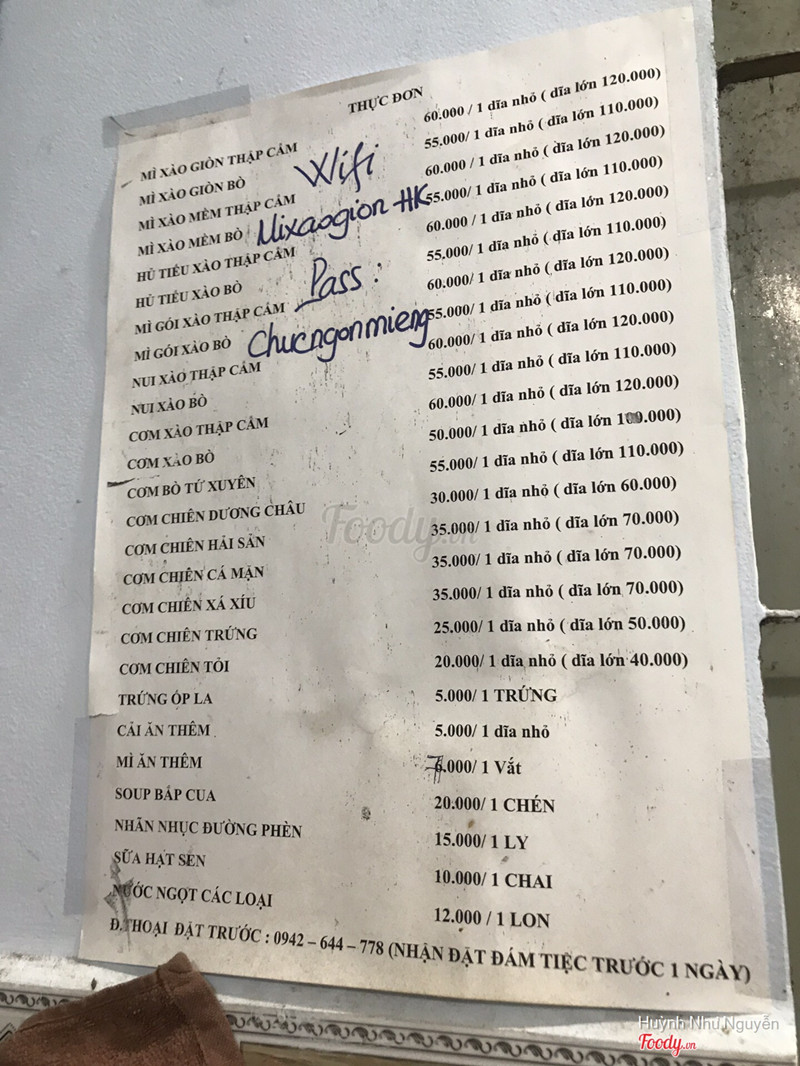 THỰC ĐƠN
MÌ XÀO GIÒN THẬP CẨM 60.000 / 1 dĩa nhỏ ( dĩa lớn 120.000)
MÌ XÀO GIÒN BÒ 55.000/ 1 dĩa nhỏ ( dĩa lớn 110.000)
MÌ XÀO MỀM THẬP CẨM 60.000 / 1 dĩa nhỏ ( dĩa lớn 120.000)
MÌ XÀO MỀM BÒ 55.000/ 1 dĩa nhỏ ( dĩa lớn 110.000)
HỦ TIẾU XÀO THẬP CẨM 60.000 / 1 dĩa nhỏ ( dĩa lớn 120.000)
HỦ TIẾU XÀO BÒ 55.000/ 1 dĩa nhỏ ( dĩa lớn 110.000)
MÌ GÓI XÀO THẬP CẨM 60.000/ 1 dĩa nhỏ ( dĩa lớn 120.000)
MÌ GÓI XÀO BÒ 55.000/ 1 dĩa nhỏ ( dĩa lớn 110.000)
NUI XÀO THẬP CẨM 60.000/ 1 dĩa nhỏ ( dĩa lớn 120.000)
NUI XÀO BÒ 55.000/ 1 dĩa nhỏ ( dĩa lớn 110.000)
CƠM XÀO THẬP CẨM 60.000/ 1 dĩa nhỏ ( dĩa lớn 120.000)
CƠM XÀO BÒ 50.000/ 1 dĩa nhỏ ( dĩa lớn 100.000)
CƠM BÒ TỨ XUYÊN 55.000/ 1 dĩa nhỏ ( dĩa lớn 110.000)
CƠM CHIÊN DƯƠNG CHÂU 30.000/ 1 dĩa nhỏ ( dĩa lớn 60.000)
CƠM CHIÊN HẢI SẢN 35.000/ 1 dĩa nhỏ ( dĩa lớn 70.000)
CƠM CHIÊN CÁ MẶN 35.000/ 1 dĩa nhỏ ( dĩa lớn 70.000)
CƠM CHIÊN XÁ XÍU 35.000/ 1 dĩa nhỏ ( dĩa lớn 70.000)
CƠM CHIÊN TRỨNG 25.000/ 1 dĩa nhỏ ( dĩa lớn 50.000)
CƠM CHIÊN TỎI 20.000/ 1 dĩa nhỏ ( dĩa lớn 40.000)
TRỨNG ỐP LA 5.000/ 1 TRỨNG
CẢI ĂN THÊM 5.000/ 1 dĩa nhỏ
MÌ ĂN THÊM 7.000/ 1 Vắt
SOUP BẮP CUA 20.000/ 1 CHÉN
NHÃN NHỤC ĐƯỜNG PHÈN 15.000/ 1 LY
SỮA HẠT SEN 10.000/ 1 CHAI
NƯỚC NGỌT CÁC LOẠI 12.000 / 1 LON
Đ.THOẠI ĐẶT TRƯỚC : 0942 – 644 – 778 (NHẬN ĐẶT ĐÁM TIỆC TRƯỚC 1 NGÀY)
Wifi
Mixaogion-HK
Pass :
Chucngonmieng
Foody.vn
Huỳnh Như Nguyễn
Foody.vn